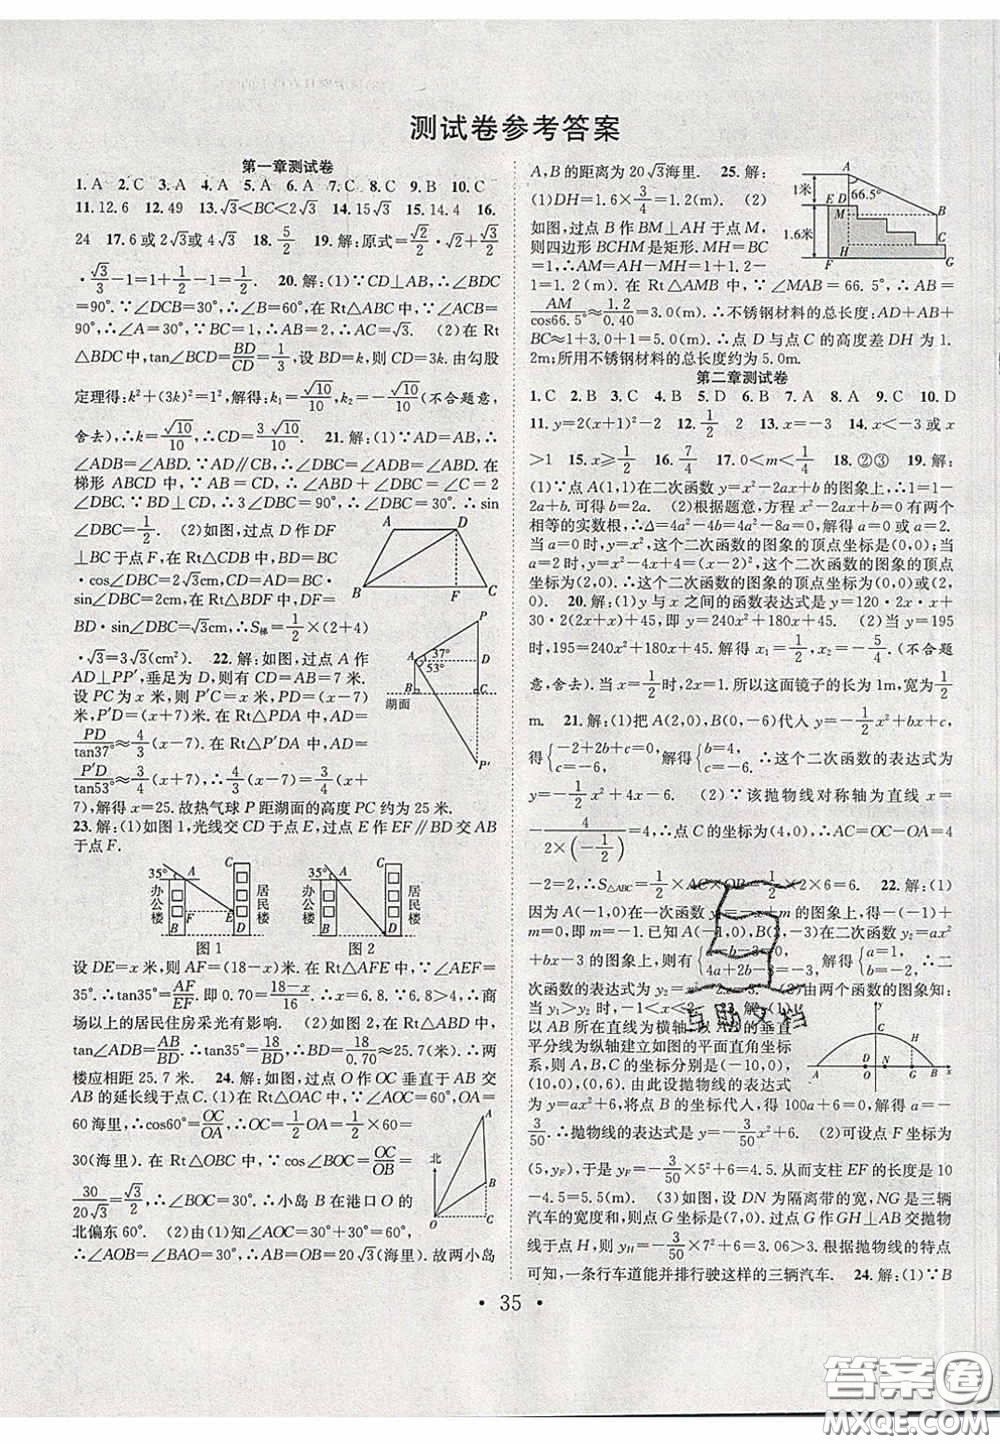 测试卷参考答案
第一章测试卷
1. A 2. C 3. A 4. A 5. A 6. A 7. C 8. C 9. B 10. C
11. 12.6 12. 49 13. √3<BC<2√3 14. 15√3 15. 14.4 16.
24 17. 6或2√3或4√3 18. 5/2 19. 解:原式=√2/2·√2+√3/2
·√3/3-1=1+1/2-1=1/2. 20. 解:(1)∵CD⊥AB,∴∠BDC
=90°.∵∠DCB=30°,∴∠B=60°.在Rt△ABC中,∵∠ACB
=90°,∴∠A=30°,∴AB=2,∴AC=√3. (2)在Rt
△BDC中,tan∠BCD=BD/CD=1/3,设BD=k,则CD=3k.由勾股
定理得:k²+(3k)²=1²,解得:k₁=√10/10,k₂=-√10/10(不合题意,
舍去),∴k=√10/10,∴CD=3√10/10. 21. 解:(1)∵AD=AB,∴
∠ADB=∠ABD.∵AD∥CB,∴∠DBC=∠ADB=∠ABD.在
梯形ABCD中,∵AB=CD,∴∠ABD+∠DBC=∠C=2
∠DBC.∵BD⊥CD,∴3∠DBC=90°,∴∠DBC=30°,∴sin
∠DBC=1/2. (2)如图,过点D作DF
⊥BC于点F.在Rt△CDB中,BD=BC
·cos∠DBC=2√3cm,CD=BC·
sin∠DBC=2cm,在Rt△BDF中,DF=
BD·sin∠DBC=√3cm,∴S梯=1/2×(2+4)
·√3=3√3(cm²). 22. 解:如图,过点A作
AD⊥PP′,垂足为D,则有CD=AB=7米.
设PC为x米,则P′C=x米,PD=(x-7)
米,P′D=(x+7)米.在Rt△PDA中,AD=
PD/tan37°≈4/3(x-7).在Rt△P′DA中,AD=
P′D/tan53°≈3/4(x+7),∴4/3(x-7)=3/4(x+
7),解得x=25.故热气球P距湖面的高度PC约为25米.
23. 解:(1)如图1,光线交CD于点E,过点E作EF∥BD交AB
于点F.
图1 图2
设DE=x米,则AF=(18-x)米.在Rt△AFE中,∵∠AEF=
35°.∴tan35°=AF/EF.即0.70=18-x/16.∴x=6.8>5.∴商
场以上的居民住房采光有影响. (2)如图2,在Rt△ABD中,
tan∠ADB=AB/BD.∴tan35°=AB/BD.∴BD=18/0.70≈25.7(米).∴两
楼应相距25.7米. 24. 解:如图,过点O作OC垂直于AB交
AB的延长线于点C.(1)在Rt△OAC中,∵∠AOC=60°,OA=
60海里,∴cos60°=OC/OA=1/2,∴OC=1/2OA=1/2×60=
30(海里).在Rt△OBC中,∵cos∠BOC=OC/OB=
30/20√3=√3/2,∴∠BOC=30°.∴小岛B在港口O的
北偏东60°. (2)由(1)知∠AOC=30°+30°=60°,
∴∠AOB=∠BAO=30°,∴AB=OB=20√3(海里).故两小岛
A,B的距离为20√3海里. 25. 解:
(1)DH=1.6×3/4=1.2(m). (2)
如图,过点B作BM⊥AH于点M,
则四边形BCHM是矩形.MH=BC=
1.∴AM=AH-MH=1+1.2-
1=1.2.在Rt△AMB中,∵∠MAB=66.5°,∴AB=
AM/cos66.5°≈1.2/0.40=3.0(m).∴不锈钢材料的总长度:AD+AB+
BC≈1+3.0+1=5.0(m).∴点D与点C的高度差DH为1.
2m;所用不锈钢材料的总长度约为5.0m.
第二章测试卷
1. C 2. B 3. C 4. B 5. D 6. B 7. A 8. A 9. C 10. D
11. y=2(x+1)²-2 12. 1/2 2 13. x=-3 14. x<-3或x
>1 15. x≥1/2 16. 7/4 17. 0<m<1/4 18. ②③ 19. 解:
(1)∵点A(1,1)在二次函数y=x²-2ax+b的图象上,∴1=1-
2a+b.可得b=2a. (2)根据题意,方程x²-2ax+b=0有两个
相等的实数根,∴Δ=4a²-4b=4a²-8a=0,解得a=0或a=2.
当a=0时,y=x²,这个二次函数的图象的顶点坐标是(0,0);当a
=2时,y=x²-4x+4=(x-2)²,这个二次函数的图象的顶点
坐标为(2,0).∴这个二次函数的图象的顶点坐标为(0,0)或(2,
0). 20. 解:(1)y与x之间的函数表达式是y=120·2x·x+
30·2(x+2x)+45,即y=240x²+180x+45. (2)当y=195
时,195=240x²+180x+45.解得x₁=1/2,x₂=-5/4.(不合题
意,舍去).当x=1/2时,2x=1.所以这面镜子的长为1m,宽为1/2
m. 21. 解:(1)把A(2,0),B(0,-6)代入y=-1/2x²+bx+c
得{-2+2b+c=0,c=-6,解得{b=4,c=-6.∴这个二次函数的表达式为
y=-1/2x²+4x-6. (2)∵该抛物线对称轴为直线x=
-4/2×(-1/2)=4,∴点C的坐标为(4,0),∴AC=OC-OA=4
-2=2,∴S△ABC=1/2×AC×OB=1/2×2×6=6. 22. 解:(1)
因为A(-1,0)在一次函数y₁=-x+m的图象上,得-(-1)+
m=0,即m=-1.已知A(-1,0),B(2,-3)在二次函数y₂=ax²
+bx-3的图象上,则有{a-b-3=0,4a+2b-3=-3,解得{a=1,b=-2.∴二
次函数的表达式为y₂=x²-2x-3. (2)由两个函数的图象知:
当y₁>y₂时,-1<x<2. 23. 解:(1)
以AB所在直线为横轴,以AB的垂直
平分线为纵轴建立如图的平面直角坐标
系,则A,B,C的坐标分别是(-10,0),
(10,0),(0,6).由此设抛物线的表达式
为y=ax²+6.将B的坐标代入,得100a+6=0.解得a=-
3/50.∴抛物线的表达式是y=-3/50x²+6. (2)可设点F坐标为
(5,yF),于是yF=-3/50×5²+6=4.5,从而支柱EF的长度是10
-4.5=5.5(米). (3)如图,设DN为隔离带的宽,NG是三辆
汽车的宽度和,则点G坐标是(7,0).过点G作GH⊥AB交抛物
线于点H,则yH=-3/50×7²+6=3.06>3.根据抛物线的特点
可知,一条行车道能并排行驶这样的三辆汽车. 24. 解:(1)∵B
• 35 •
互助文档
答案圈
MXQE.COM